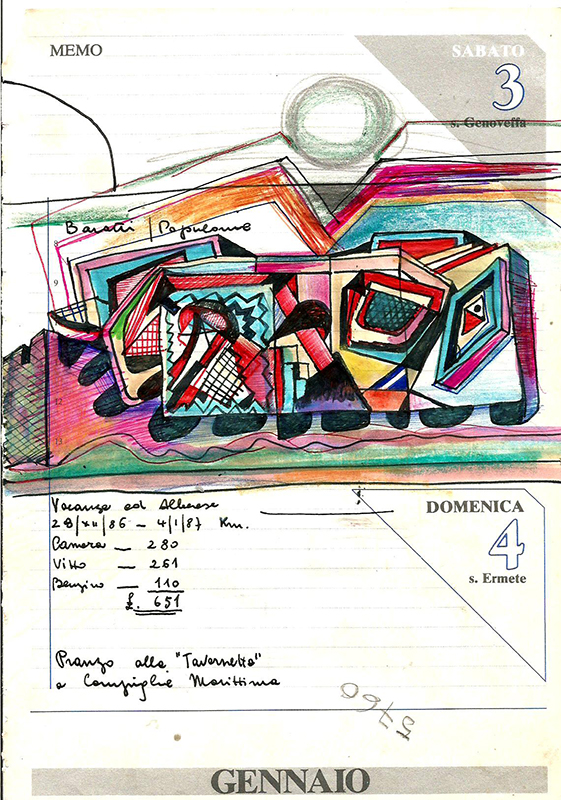 MEMO
SABATO
3
s. Genoveffa
Baratti / Populonia
9
12
13
Vacanza ad Alberese
29/XII/86 – 4/1/87 Km.
Camera — 280
Vitto — 261
Benzina — 110
£. 651
DOMENICA
4
s. Ermete
Pranzo alla "Tavernetta"
a Campiglia Marittima
GENNAIO